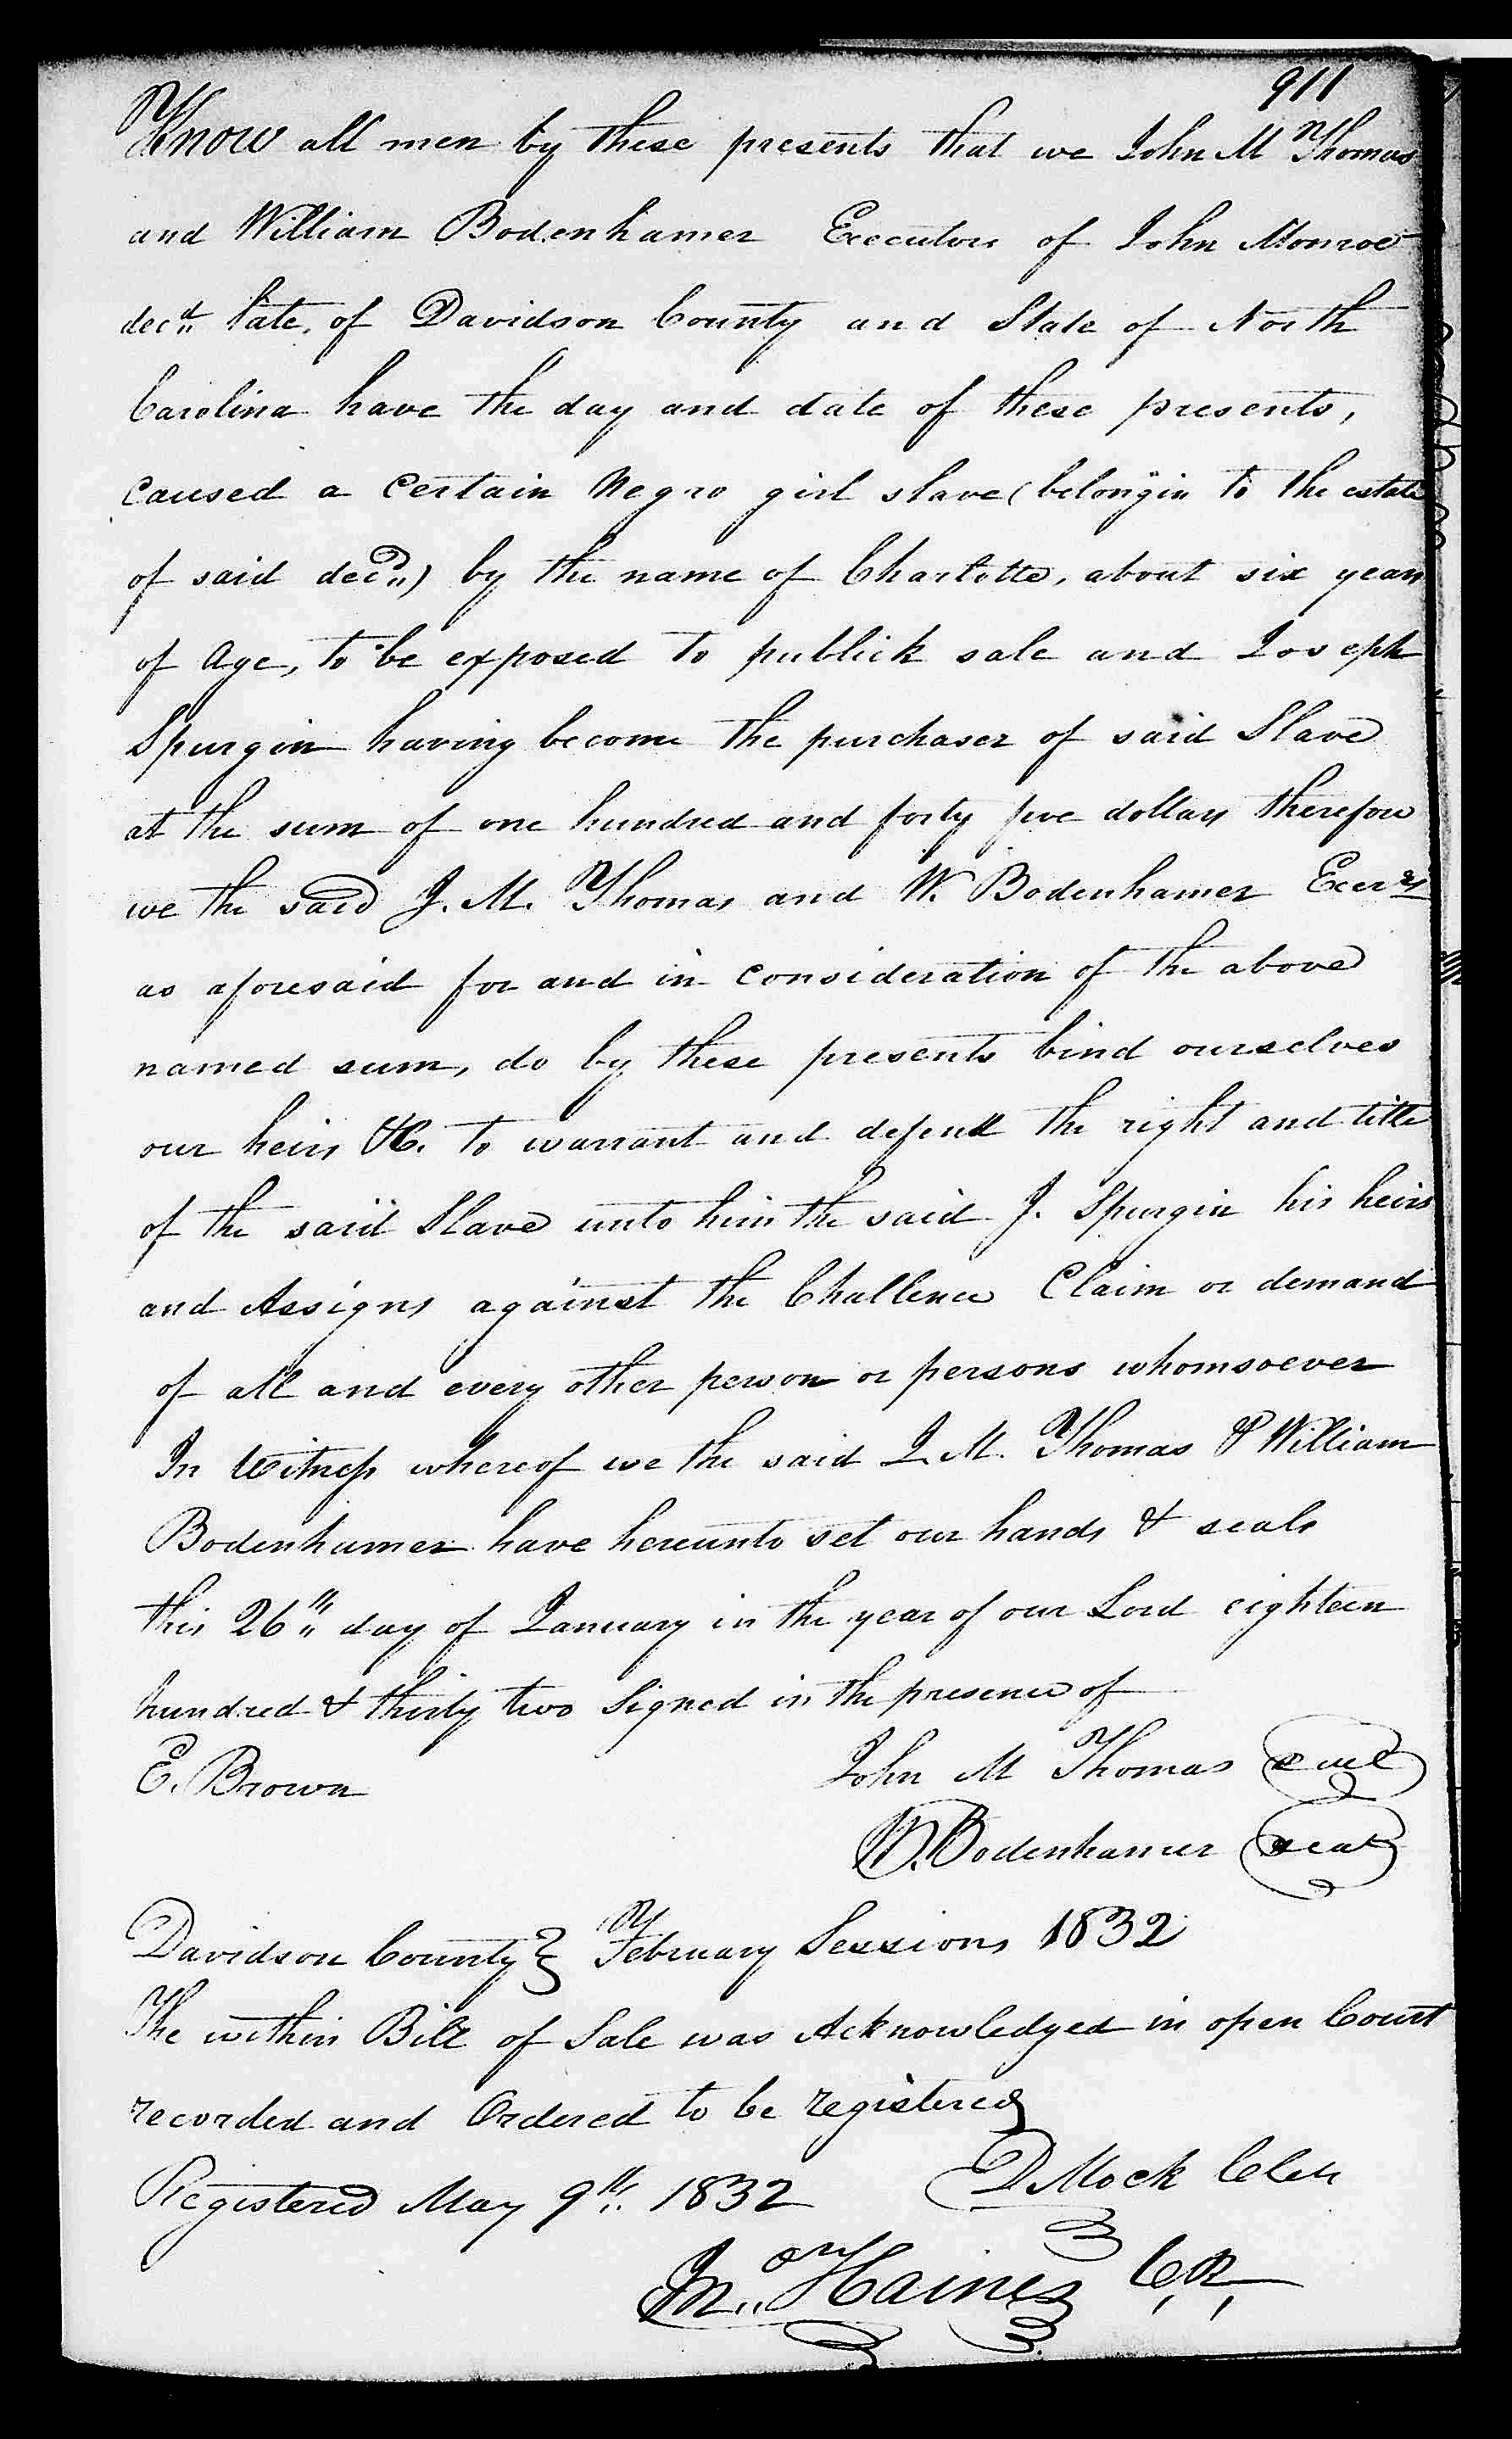 911
Know all men by these presents that we John M Thomas
and William Bodenhamer Executors of John Monroe
decd. late, of Davidson County and State of North
Carolina have the day and date of these presents,
caused a Certain Negro girl slave (belongin to the estate
of said decd.) by the name of Charlotte, about six years
of Age, to be exposed to publick sale and Joseph
Spurgin having become the purchaser of said Slave
at the sum of one hundred and forty five dollars therefore
we the said J. M. Thomas and W. Bodenhamer Exers
as aforesaid for and in Consideration of the above
named sum, do by these presents bind ourselves
our heirs &C. to warrant and defend the right and title
of the said Slave unto him the said J. Spurgin his heirs
and Assigns against the Challence Claim or demand
of all and every other person or persons whomsoever
In Witness whereof we the said J. M. Thomas & William
Bodenhamer have hereunto set our hands & seals
this 26th day of January in the year of our Lord eighteen
hundred & thirty two Signed in the presence of
E. Brown John M Thomas seal
W. Bodenhamer seal
Davidson County } February Sessions 1832
The within Bill of Sale was Acknowledged in open Court
recorded and Ordered to be registered
D Mock Clerk
Registered May 9th. 1832
Haines